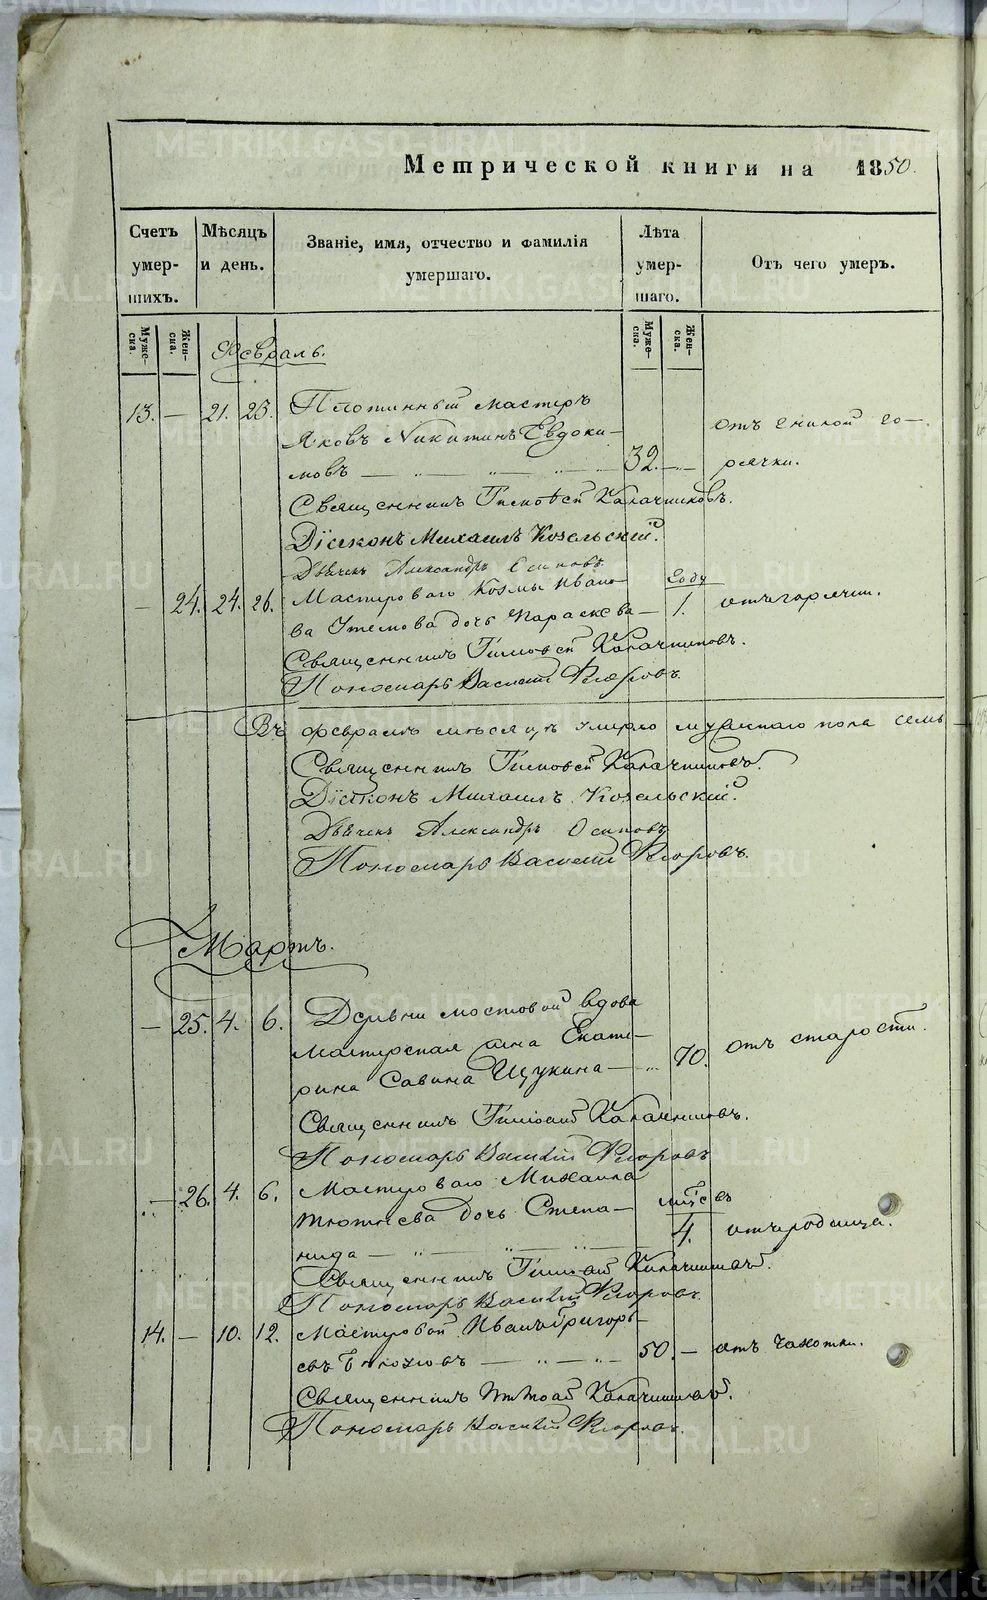 Метрической книги на 1850.
Счетъ умер- шихъ.
Мѣсяцъ и день.
Званіе, имя, отчество и фамилія умершаго.
Лѣта умер- шаго.
Отъ чего умеръ.
Муже- ска.
Жен- ска.
Муже- ска.
Жен- ска.
Февраль.
13. — 21. 23. Плотинный мастеръ
Яковъ Никитинъ Евдоки- отъ гнилой го-
мовъ — 32. — рячки.
Священникъ Тимофей Калачниковъ.
Дiаконъ Михаилъ Козельскiй.
Дьячекъ Александръ Осиповъ
— 24. 24. 26. Мастероваго Козмы Ивано- Году
ва дочь Параскева — 1. отъ горячки.
Священникъ Тимофей Калачниковъ.
Пономарь Василий Флоровъ.
Въ феврале месяце умерло мужскаго пола семь
Священникъ Тимофей Калачниковъ.
Дiаконъ Михаилъ Козельскiй.
Дьячекъ Александръ Осиповъ
Пономарь Василий Флоровъ.
Мартъ.
— 25. 4. 6. Деревни Мостовой вдова
мастерская жена Екате- отъ старости.
рина Савина Щукина — 70.
Священникъ Тимофей Калачниковъ.
Пономарь Василий Флоровъ
— 26. 4. 6. Мастероваго Михаила
дочь Степа- мѣс-въ
нида — 4. отъ родимца.
Священникъ Тимофей Калачниковъ.
Пономарь Василий Флоровъ.
14. — 10. 12. Мастеровой Иванъ Григорь-
евъ — 50. — отъ чахотки.
Священникъ Тимофей Калачниковъ.
Пономарь Василий Флоровъ.
METRIKI.GASO-URAL.RU